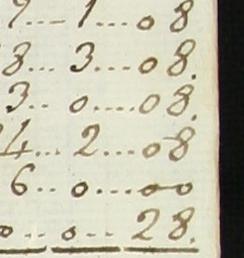 9....1....08
8...3....08.
3...0.....08.
4...2....08
6...0.....00
0...0....28.